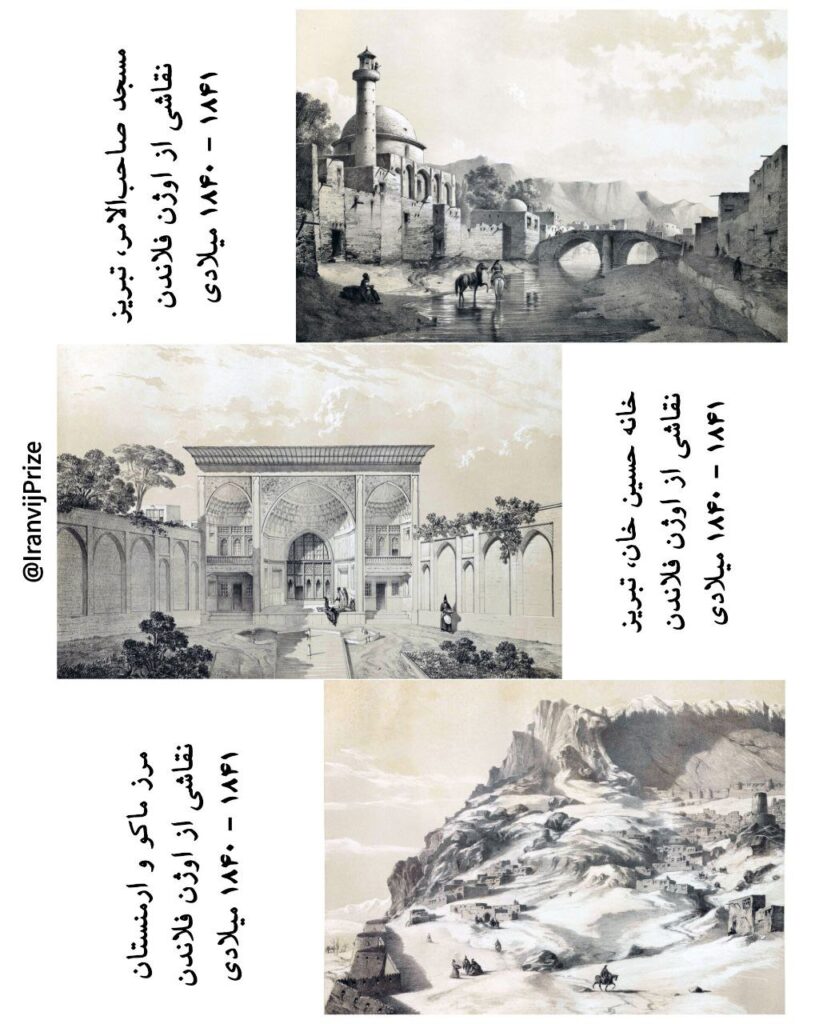 مسجد صاحب‌الامر، تبریز
نقاشی از اوژن فلاندن
۱۸۴۰ - ۱۸۴۱ میلادی
@IranvijPrize
خانه حسین خان، تبریز
نقاشی از اوژن فلاندن
۱۸۴۰ - ۱۸۴۱ میلادی
مرز ماکو و ارمنستان
نقاشی از اوژن فلاندن
۱۸۴۰ - ۱۸۴۱ میلادی